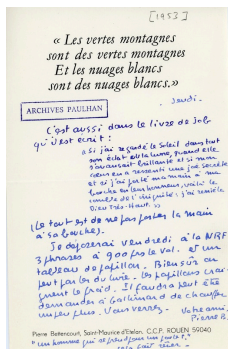 [1953]
« Les vertes montagnes
sont des vertes montagnes
Et les nuages blancs
sont des nuages blancs.»
Jeudi.
ARCHIVES PAULHAN
C'est aussi dans le livre de Job
qu'il est écrit :
« Si j'ai regardé le Soleil dans tout
son éclat et la lune, quand elle
s'avançait brillante et si mon
cœur en a ressenti une joie secrète
et si j'ai porté ma main à ma
bouche en leur honneur, voilà le
comble de l'iniquité : j'ai renié le
Dieu Très-Haut. »
(Le tout est de ne pas porter la main
à sa bouche).
Je déposerai vendredi à la NRF
3 phrases à 900 frs le vol. et un
tableau de papillon. Bien sûr on
peut par le du livre. Les papillons crai-
gnent le froid. Il faudra peut être
demander à Gallimard de chauffer
un peu plus. Vous verrez. Votre ami,
Pierre B.
Pierre Bettencourt, Saint-Maurice-d'Etelan. C.C.P. ROUEN 59040
"un homme qui se prend pour un poète,"